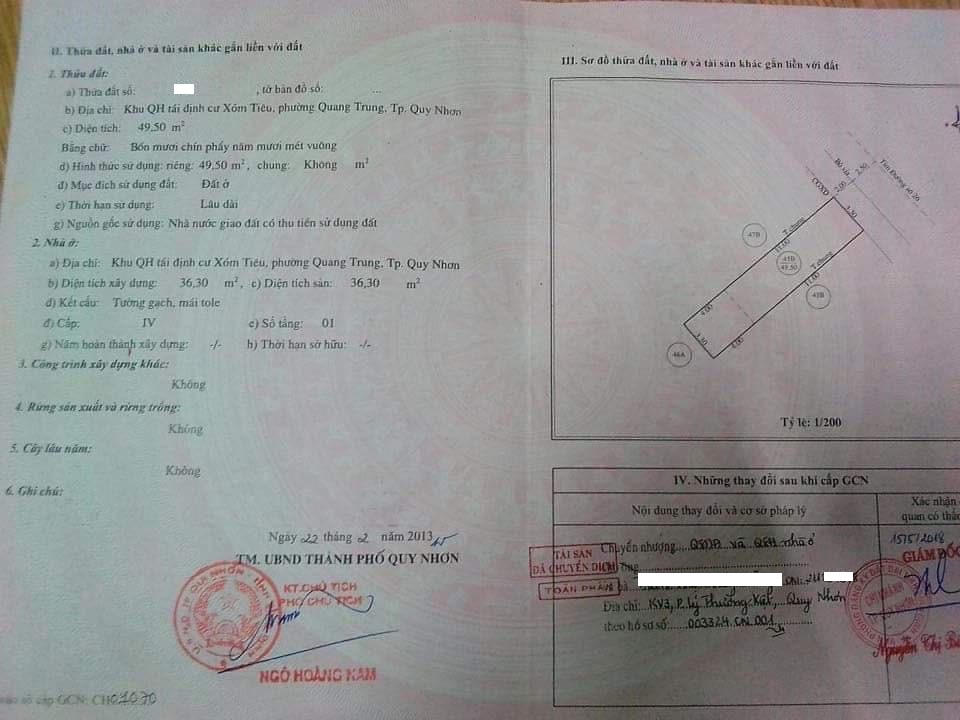 II. Thửa đất, nhà ở và tài sản khác gắn liền với đất
1. Thửa đất:
a) Thửa đất số: , tờ bản đồ số: ...
b) Địa chỉ: Khu QH tái định cư Xóm Tiêu, phường Quang Trung, Tp. Quy Nhơn
c) Diện tích: 49,50 m²
Bằng chữ: Bốn mươi chín phẩy năm mươi mét vuông
d) Hình thức sử dụng: riêng: 49,50 m², chung: Không m²
đ) Mục đích sử dụng đất: Đất ở
e) Thời hạn sử dụng: Lâu dài
g) Nguồn gốc sử dụng: Nhà nước giao đất có thu tiền sử dụng đất
2. Nhà ở:
a) Địa chỉ: Khu QH tái định cư Xóm Tiêu, phường Quang Trung, Tp. Quy Nhơn
b) Diện tích xây dựng: 36,30 m², c) Diện tích sàn: 36,30 m²
d) Kết cấu: Tường gạch, mái tole
đ) Cấp: IV e) Số tầng: 01
g) Năm hoàn thành xây dựng: -/- h) Thời hạn sở hữu: -/-
3. Công trình xây dựng khác:
Không
4. Rừng sản xuất và rừng trồng:
Không
5. Cây lâu năm:
Không
6. Ghi chú:
Ngày 22 tháng 2 năm 2013
TM. UBND THÀNH PHỐ QUY NHƠN
KT.CHỦ TỊCH
PHÓ CHỦ TỊCH
NGÔ HOÀNG NAM
vào sổ cấp GCN: CH01070
III. Sơ đồ thửa đất, nhà ở và tài sản khác gắn liền với đất
Tim Đường số 26
Bó vỉa
2,50
2,00
CGXD
3,30
T chung
11,00
47B
45B
49,50
T chung
11,00
43B
4,00
4,00
3,30
46A
Tỷ lệ: 1/200
IV. Những thay đổi sau khi cấp GCN
Nội dung thay đổi và cơ sở pháp lý
Xác nhận
quan có thẩ
Chuyển nhượng QSDĐ và QSH nhà ở
TÀI SẢN
ĐÃ CHUYỂN DỊCH
TOÀN PHẦN
Địa chỉ: KV3, P. Lý Thường Kiệt, Quy Nhơn
theo hồ sơ số: 003324.CN.001
15/5/2018
GIÁM ĐỐC
Nguyễn Thị